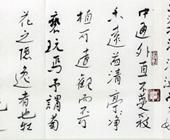 中通外直不蔓
香遠益清亭亭淨
植可遠觀而不可
褻玩焉予謂菊
花之隱逸者也牡